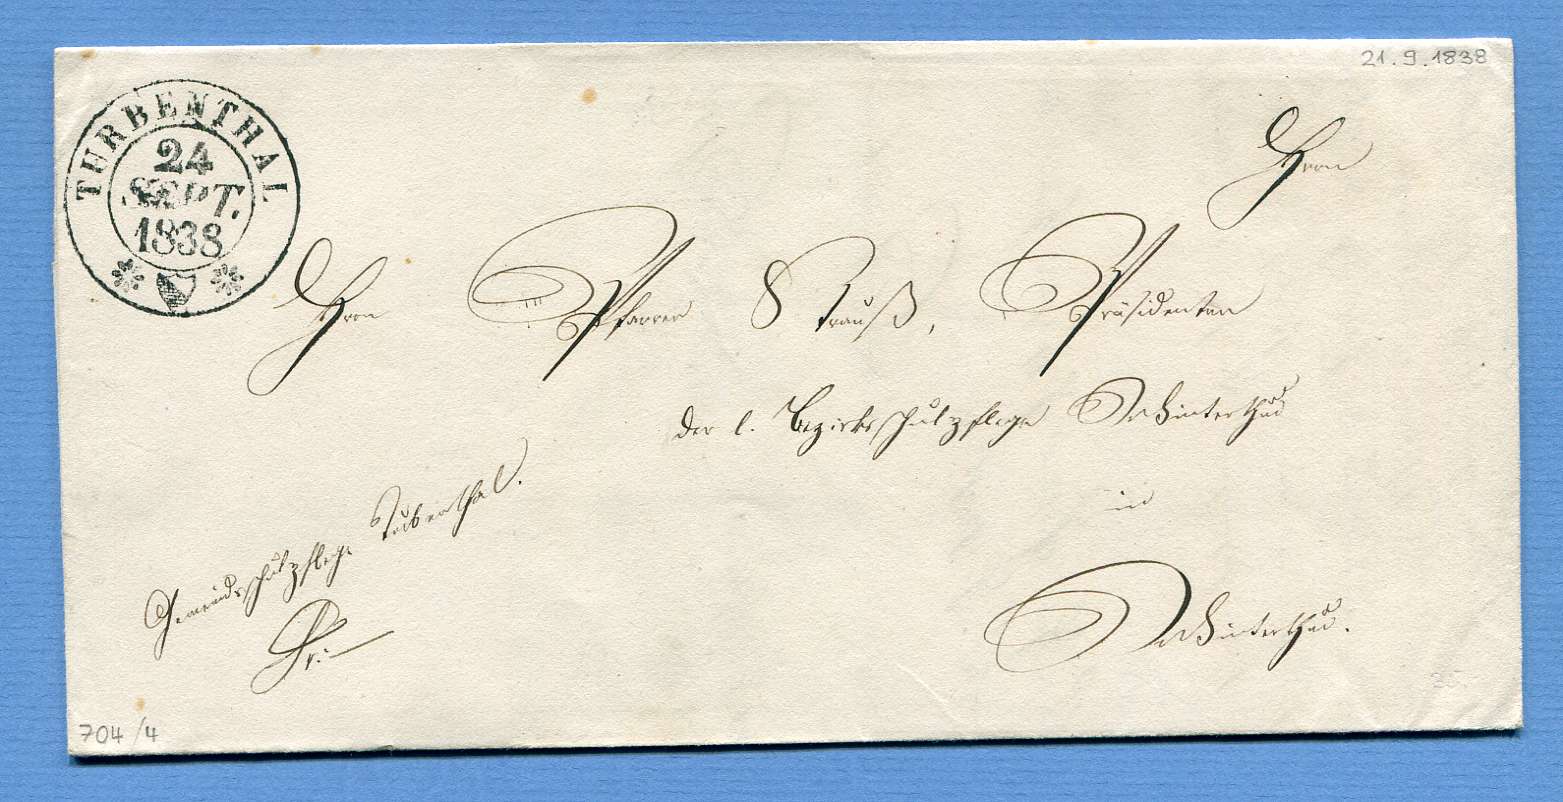 21.9.1838
TURBENTHAL
24
SEPT.
1838
Herrn
Herrn Pfarrer Strauß, Präsidenten
der l. Bezirksschulpflege Winterthur
in
Winterthur.
Gemeindsschulpflege Turbenthal.
704/4